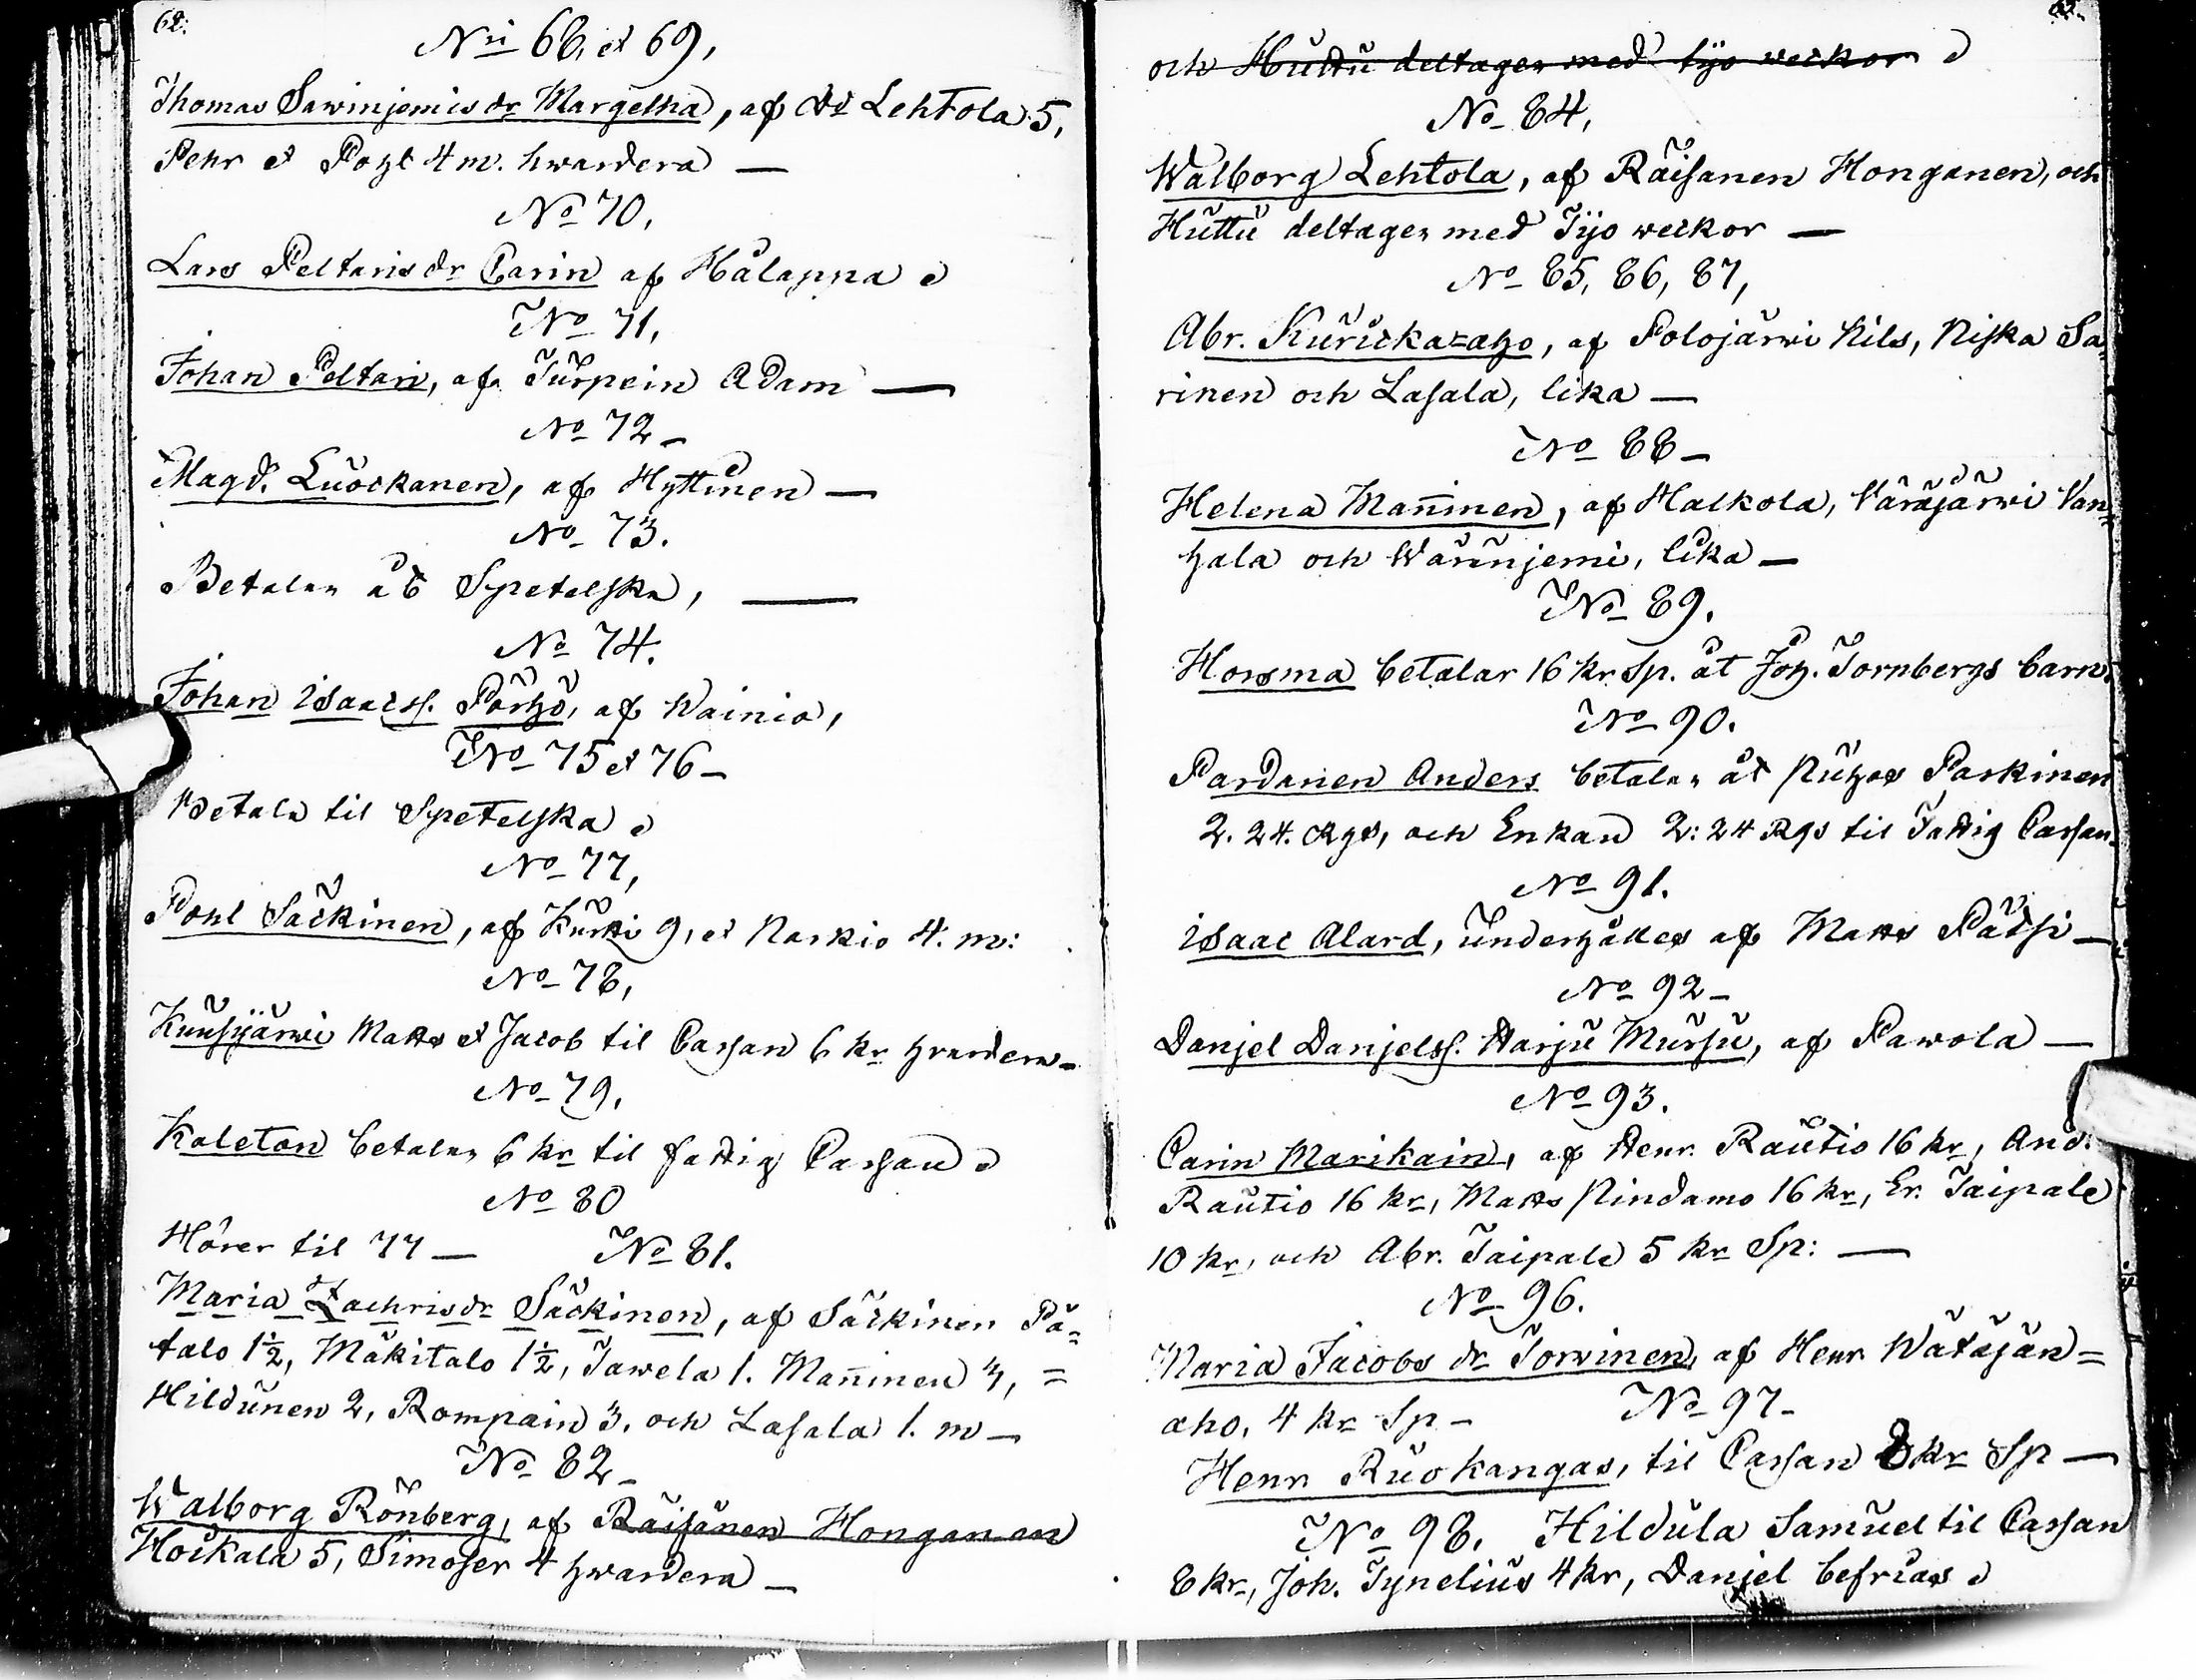 62:
Nri 68, et 69,
Thomas Sawinjemis dr Margetha, af Lehtola 5,
Pehr et Pohl 4 m. hwardera —
No 70,
Lars Peltaris dr Carin af Halappa
No 71,
Johan Peltari, af Turpein Adam —
No 72 –
Magd. Luockanen, af Hyttinen —
No 73.
Betalar åt Spetelska, —
No 74.
Johan Isaacss. Pörhö, af Wainio,
No 75 et 76 –
Betala til Spetelska
No 77,
Pohl Säckinen, af Kurtti 9, et Narkio 4. m:
No 78,
Kuusijärwi Matts et Jacob til Cassan 6 kr hvardera –
No 79,
Kaleton betalar 6 kr til fattig Cassan
No 80
Hörer til 77 — No 81.
Maria Zachrisdr Säckinen, af Säckinen Pä=
talo 1½, Mäkitalo 1½, Tawela 1. Mañinen 3, =
Hildunen 2, Rompain 3. och Lasala 1. m —
No 82 –
Walborg Rönberg, af Räisänen Honganen
Hockala 5, Simoser 4 hwardera —
och Huttu deltager med tijo weckor
No 84,
Walborg Lehtola, af Räisanen Honganen, och
Huttu deltager med Tijo weckor —
No 85, 86, 87,
Abr. Kuricka=aho, af Polojärwi Nils, Niska Sa=
rinen och Lasala, lika —
No 88 –
Helena Mañinen, af Halkola, Waräjärwi Van=
hala och Warinjemi, lika —
No 89.
Horsma betalar 16 kr Sp. åt Joh. Tornbergs barn.
No 90.
Pardanen Anders betalar åt Paskinen
2. 24. Rgs, och Enkan 2: 24 Rgs til Fattig Cassan
No 91.
Isaac Alard, underhålles af Matts Pätsi —
No 92 –
Danjel Danjelss. Harju Mursu, af Pawola —
No 93.
Carin Marikain, af Henr. Rautio 16 kr, And.
Rautio 16 kr, Matts Nindamo 16 kr, Er. Taipale
10 kr, och Abr. Taipale 5 kr Sp: —
No 96.
Maria Jacobs dr Torwinen, af Henr Watajän=
aho, 4 kr Sp – No 97 –
Henr Ruokangas, til Cassan 8 kr Sp —
No 98. Hildula Samuel til Cassan
8 kr, Joh. Tynelius 4 kr, Danjel befrias